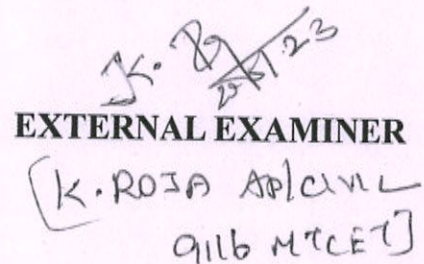 K. R
29/5/23
EXTERNAL EXAMINER
[K. ROJA AP/CIVIL
9116 MTCET]